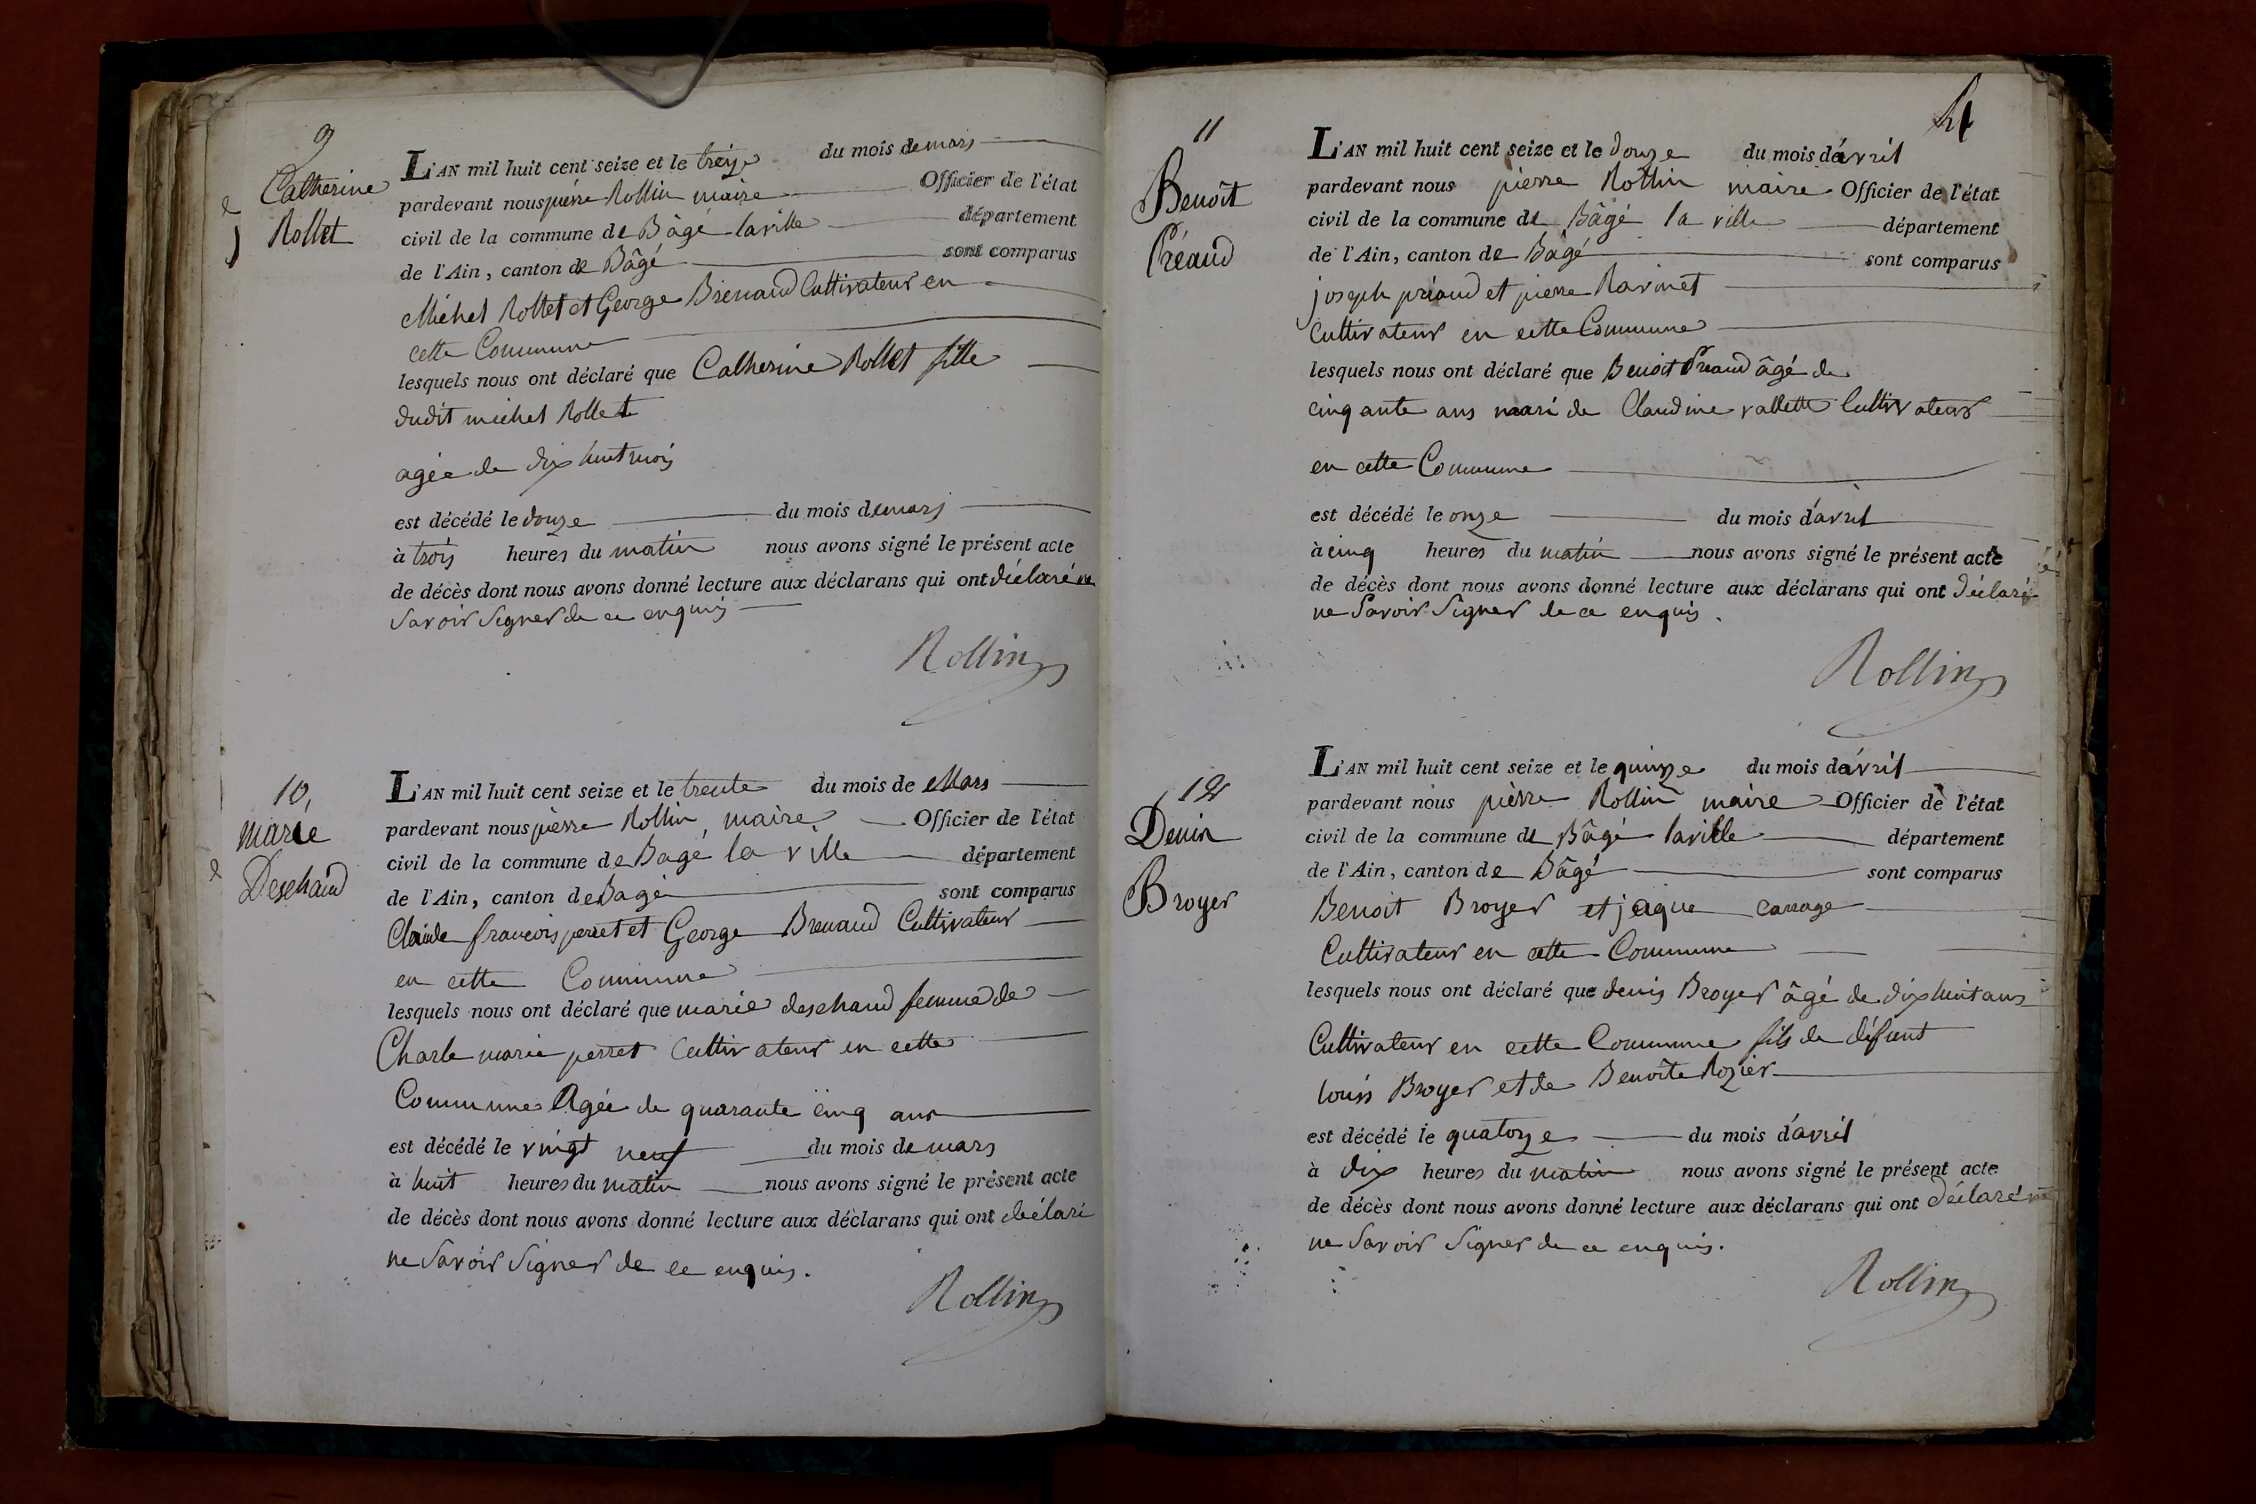 9
Catherine
Rollet
L'AN mil huit cent seize et le treize du mois de mars
pardevant nous pierre Rollin maire Officier de l'état
civil de la commune de Bâgé laville département
de l'Ain, canton de Bâgé sont comparus
Michel Rollet et George Brenaud Cultivateur en
cette Commune
lesquels nous ont déclaré que Catherine Rollet fille
dudit michel Rollet
agée de dix huit mois
est décédé le douze du mois de mars
à trois heures du matin nous avons signé le présent acte
de décès dont nous avons donné lecture aux déclarans qui ont déclaré ne
Savoir Signer de ce enquis
Rollin
10,
marie
Deschaud
L'AN mil huit cent seize et le trente du mois de Mars
pardevant nous pierre Rollin, maire Officier de l'état
civil de la commune de Bagé la ville département
de l'Ain, canton de Bagé sont comparus
Claude françois perret et George Brenaud Cultivateur
en cette Commune
lesquels nous ont déclaré que marie deschaud femme de
Charle marie perret Cultivateur en cette
Commune Agée de quarante cinq ans
est décédé le vingt neuf du mois de mars
à huit heures du matin nous avons signé le présent acte
de décès dont nous avons donné lecture aux déclarans qui ont déclaré
ne Savoir Signer de ce enquis.
Rollin
4
11
Benoît
Préaud
L'AN mil huit cent seize et le douze du mois d'avril
pardevant nous pierre Rollin maire Officier de l'état
civil de la commune de Bâgé la ville département
de l'Ain, canton de Bâgé sont comparus
joseph préaud et pierre Ravinet
Cultivateur en cette Commune
lesquels nous ont déclaré que Benoit Préaud âgé de
cinqante ans mari de Claudine vallette Cultivateur
en cette Commune
est décédé le onze du mois d'avril
à cinq heures du matin nous avons signé le présent acte
de décès dont nous avons donné lecture aux déclarans qui ont déclaré
ne Savoir Signer de ce enquis.
Rollin
12
Denis
Broyer
L'AN mil huit cent seize et le quinze du mois d'avril
pardevant nous pierre Rollin maire Officier de l'état
civil de la commune de Bâgé laville département
de l'Ain, canton de Bâgé sont comparus
Benoit Broyer et jaque carrage
Cultivateur en cette Commune
lesquels nous ont déclaré que denis Broyer âgé de dix huit ans
Cultivateur en cette Commune fils de défunt
louis Broyer et de Benoîte Rozier
est décédé le quatorze du mois d'avril
à dix heures du matin nous avons signé le présent acte
de décès dont nous avons donné lecture aux déclarans qui ont déclaré ne
ne Savoir Signer de ce enquis.
Rollin